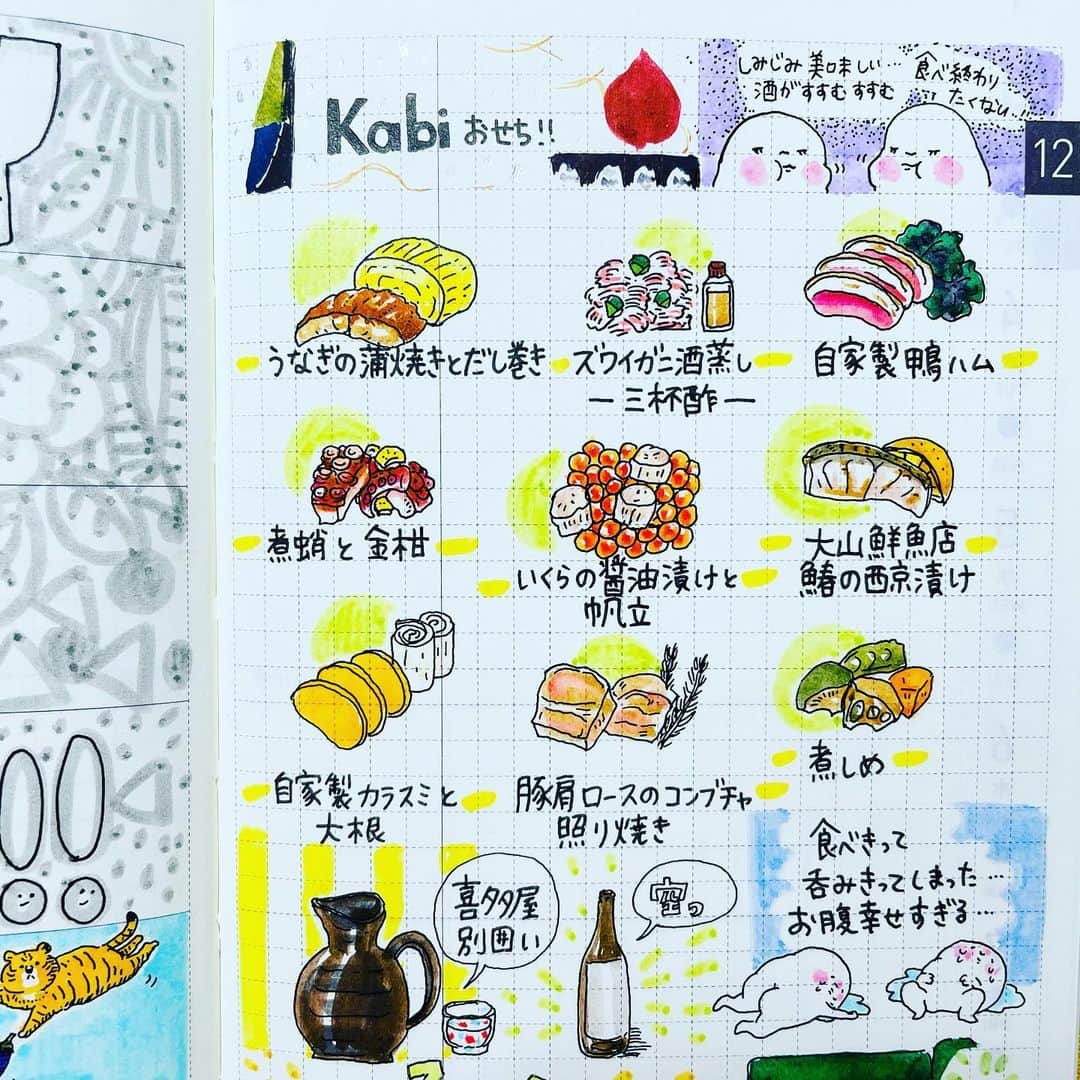 Kabi おせち!!
しみじみ美味しい…
酒がすすむすすむ
食べ終わり
たくない…!!
12
うなぎの蒲焼きとだし巻き
ズワイガニ酒蒸し
ー三杯酢ー
自家製鴨ハム
煮蛸と金柑
いくらの醤油漬けと
帆立
大山鮮魚店
鰆の西京漬け
自家製カラスミと
大根
豚肩ロースのコンブチャ
照り焼き
煮しめ
喜多屋
別囲い
空っ
食べきって
呑みきってしまった…
お腹幸せすぎる…